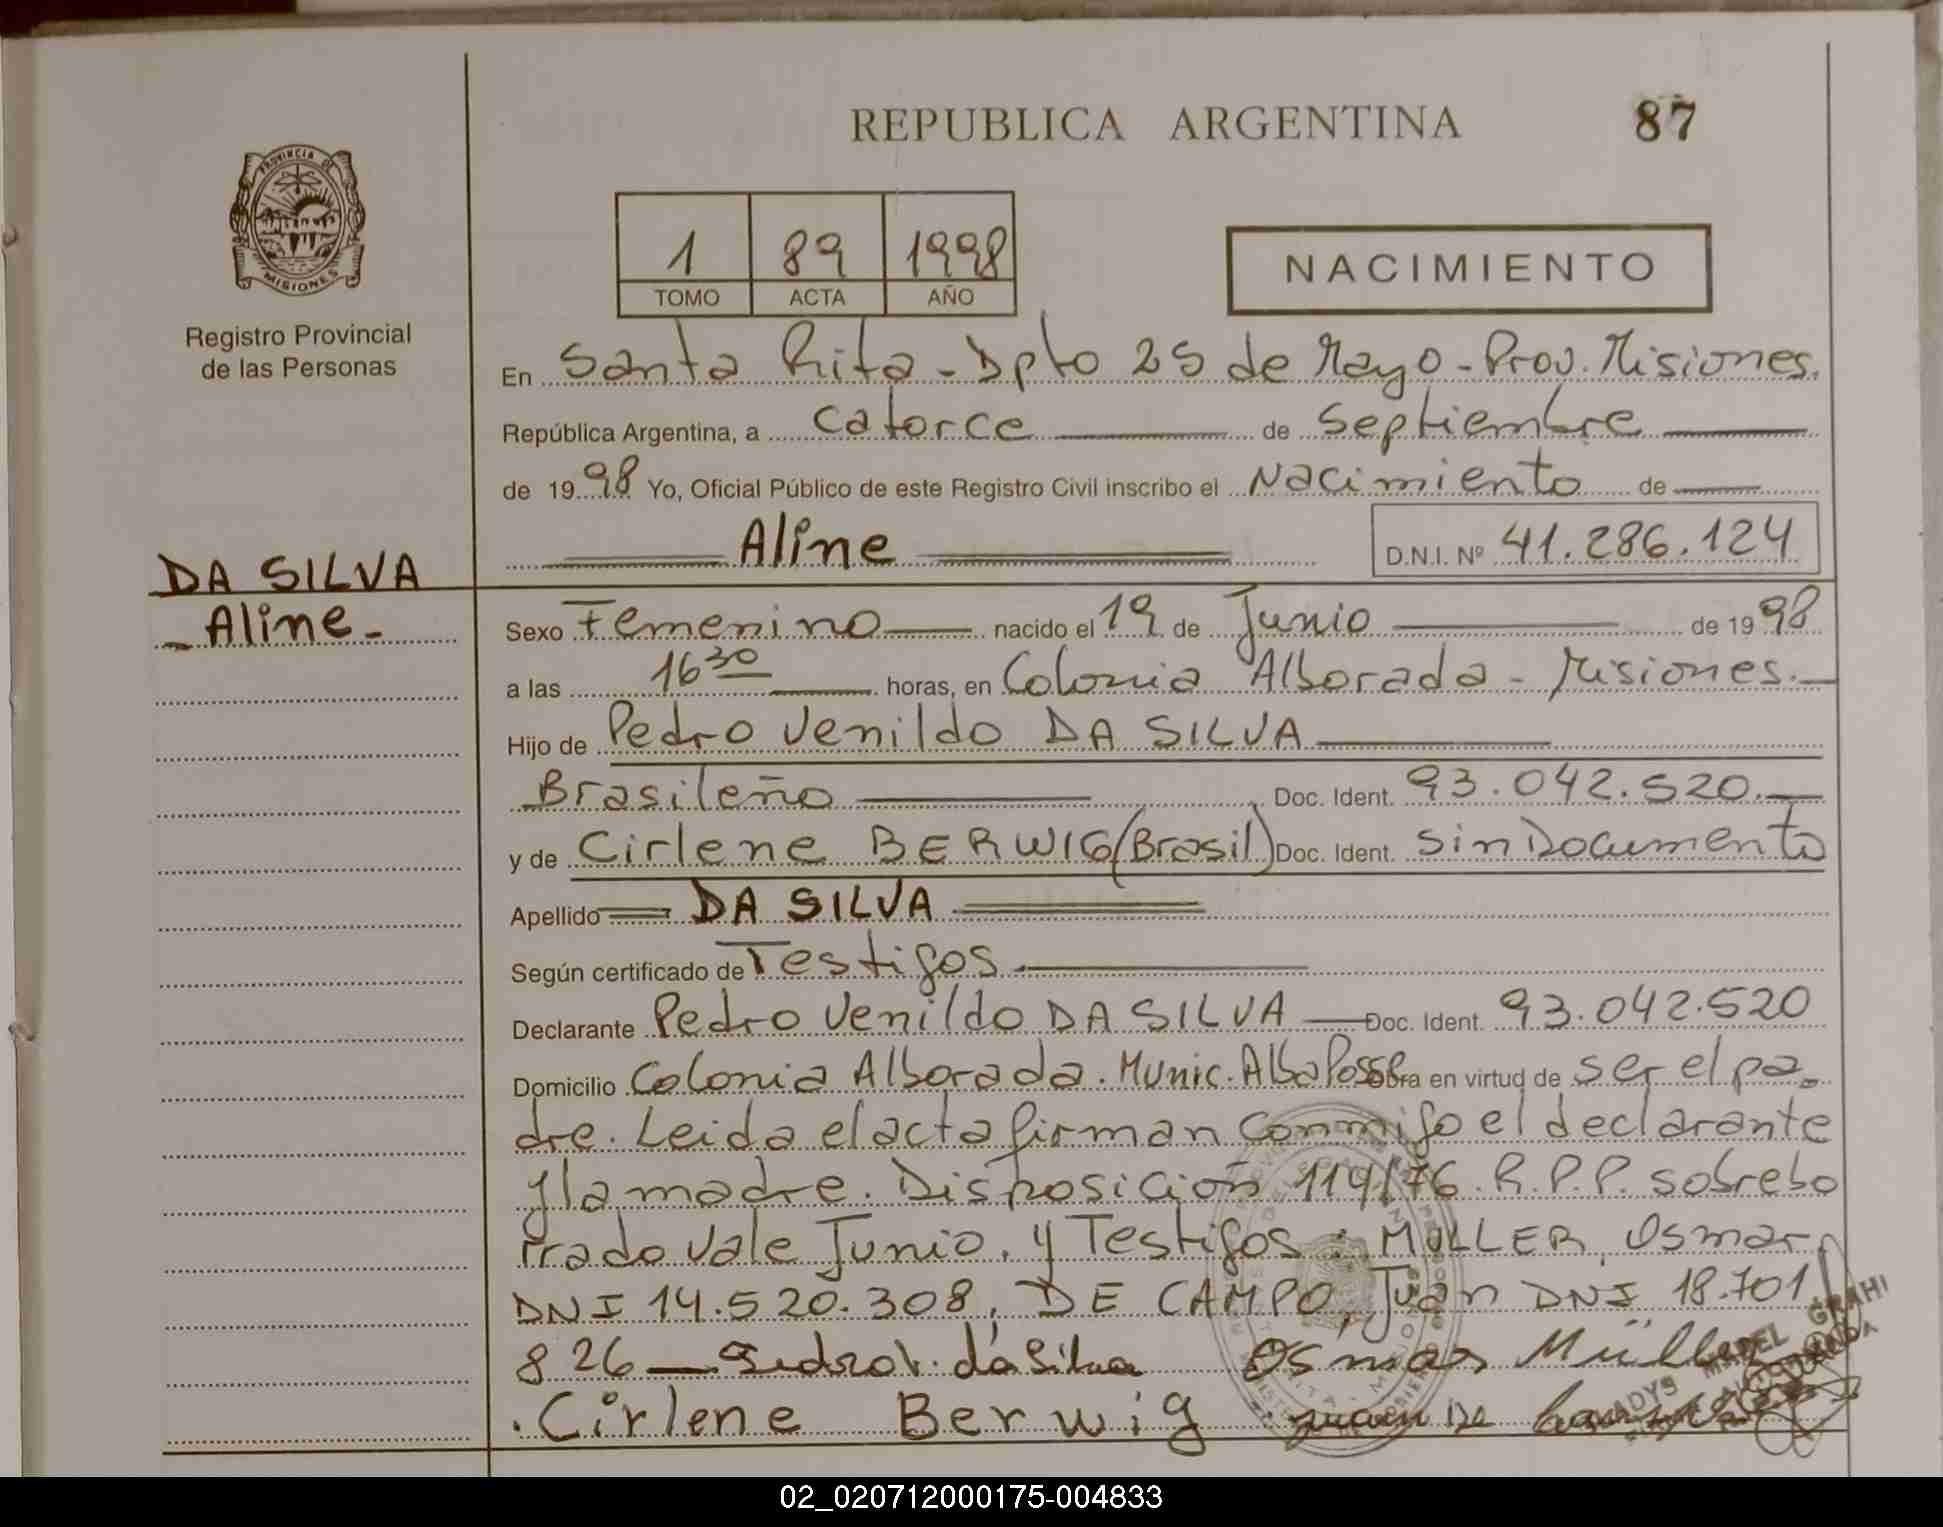 REPUBLICA ARGENTINA
87
PROVINCIA DE
MISIONES
Registro Provincial
de las Personas
1 89 1998
TOMO ACTA AÑO
NACIMIENTO
En Santa Rita - Dpto 25 de Mayo - Prov. Misiones.
República Argentina, a catorce de septiembre
de 1998 Yo, Oficial Público de este Registro Civil inscribo el Nacimiento de
Aline D.N.I. Nº 41.286.124
DA SILVA
- Aline -
Sexo Femenino nacido el 19 de Junio de 1998
a las 16 30 horas, en Colonia Alborada - Misiones.
Hijo de Pedro Venildo DA SILVA
Brasileño Doc. Ident. 93.042.520.
y de Cirlene BERWIG (Brasil) Doc. Ident. Sin Documento
Apellido DA SILVA
Según certificado de Testigos
Declarante Pedro Venildo DA SILVA Doc. Ident. 93.042.520
Domicilio Colonia Alborada. Munic. Alba Posse Obra en virtud de ser el pa-
dre. Leida el acta firman conmigo el declarante
y la madre. Disposición 119/76. R.P.P. sobrebo
rrado vale Junio. y Testigos: MULLER, Osmar
DNI 14.520.308, DE CAMPO, Juan DNI 18.701
826 — Pedro V. da Silva Osmar Müller
. Cirlene Berwig Juan De Campo
GLADYS MABEL GRAHI
02_020712000175-004833